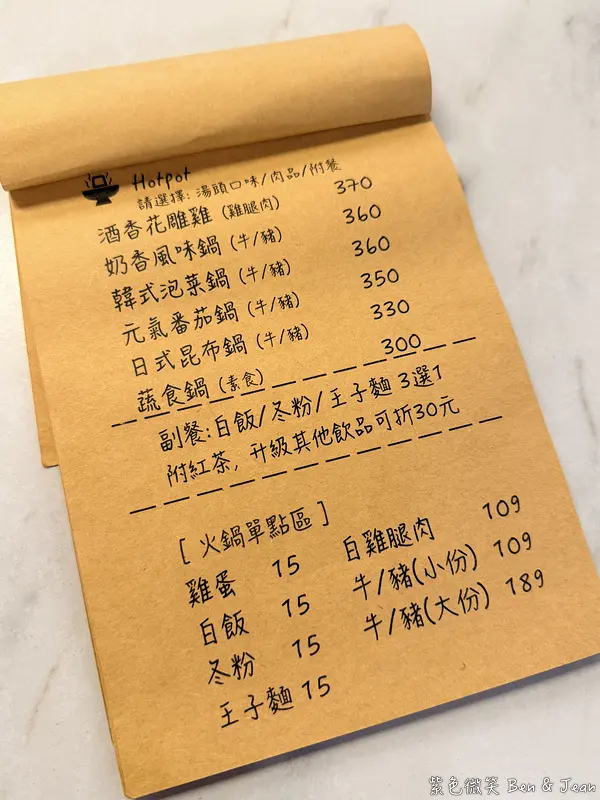 Hotpot
請選擇: 湯頭口味/肉品/附餐
酒香花雕雞 (雞腿肉) 370
奶香風味鍋 (牛/豬) 360
韓式泡菜鍋 (牛/豬) 360
元氣番茄鍋 (牛/豬) 350
日式昆布鍋 (牛/豬) 330
蔬食鍋 (素食) 300
副餐:白飯/冬粉/王子麵 3選1
附紅茶, 升級其他飲品可折30元
[ 火鍋單點區 ]
雞蛋 15 白雞腿肉 109
白飯 15 牛/豬(小份) 109
冬粉 15 牛/豬(大份) 189
王子麵 15
紫色微笑 Ben & Jean